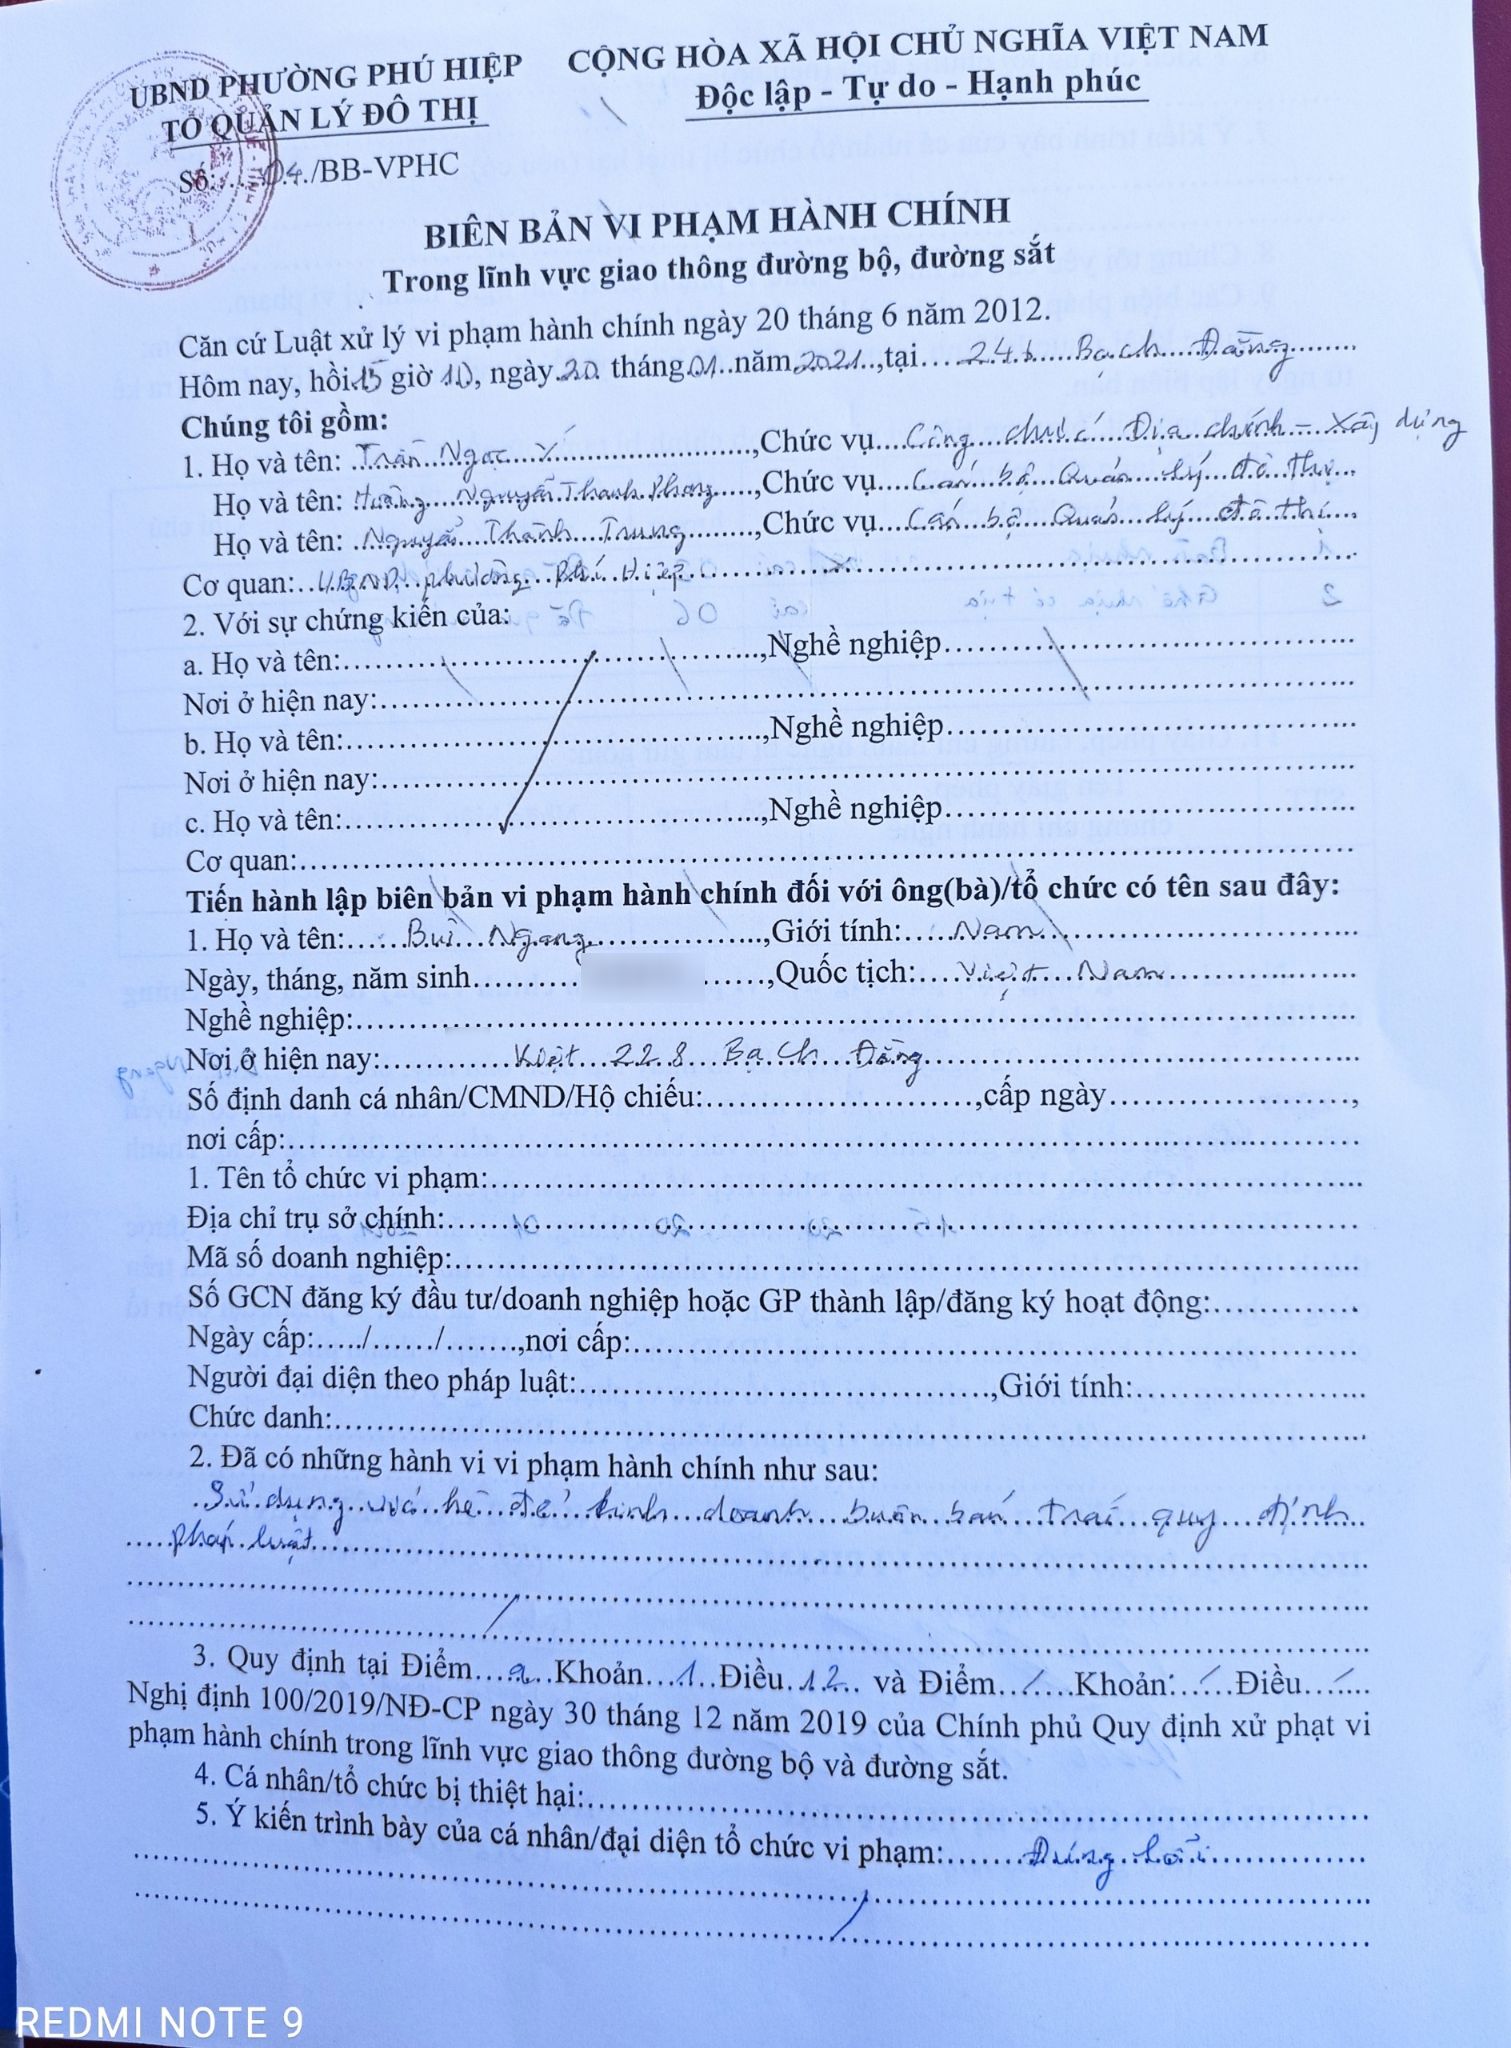 UBND PHƯỜNG PHÚ HIỆP
TỔ QUẢN LÝ ĐÔ THỊ
Số:.....04./BB-VPHC
CỘNG HÒA XÃ HỘI CHỦ NGHĨA VIỆT NAM
Độc lập - Tự do - Hạnh phúc
BIÊN BẢN VI PHẠM HÀNH CHÍNH
Trong lĩnh vực giao thông đường bộ, đường sắt
Căn cứ Luật xử lý vi phạm hành chính ngày 20 tháng 6 năm 2012.
Hôm nay, hồi 15 giờ 10, ngày 20 tháng 01 năm 2021, tại 246 Bạch Đằng
Chúng tôi gồm:
1. Họ và tên: Trần Ngọc Ý, Chức vụ Công chức Địa chính - Xây dựng
Họ và tên: Hoàng Nguyễn Thanh Phong, Chức vụ Cán bộ Quản lý đô thị
Họ và tên: Nguyễn Thành Trung, Chức vụ Cán bộ Quản lý đô thị
Cơ quan: UBND phường Phú Hiệp
2. Với sự chứng kiến của:
a. Họ và tên:....................,Nghề nghiệp....................
Nơi ở hiện nay:....................
b. Họ và tên:....................,Nghề nghiệp....................
Nơi ở hiện nay:....................
c. Họ và tên:....................,Nghề nghiệp....................
Cơ quan:....................
Tiến hành lập biên bản vi phạm hành chính đối với ông(bà)/tổ chức có tên sau đây:
1. Họ và tên: Bùi Ngang, Giới tính: Nam
Ngày, tháng, năm sinh...................., Quốc tịch: Việt Nam
Nghề nghiệp:....................
Nơi ở hiện nay: Kiệt 228 Bạch Đằng
Số định danh cá nhân/CMND/Hộ chiếu:....................,cấp ngày....................,
nơi cấp:....................
1. Tên tổ chức vi phạm:....................
Địa chỉ trụ sở chính:....................
Mã số doanh nghiệp:....................
Số GCN đăng ký đầu tư/doanh nghiệp hoặc GP thành lập/đăng ký hoạt động:.............
Ngày cấp:...../....../.......,nơi cấp:....................
Người đại diện theo pháp luật:....................,Giới tính:....................
Chức danh:....................
2. Đã có những hành vi vi phạm hành chính như sau:
Sử dụng vỉa hè để kinh doanh buôn bán trái quy định
pháp luật
3. Quy định tại Điểm a Khoản 1 Điều 12 và Điểm / Khoản: / Điều /
Nghị định 100/2019/NĐ-CP ngày 30 tháng 12 năm 2019 của Chính phủ Quy định xử phạt vi
phạm hành chính trong lĩnh vực giao thông đường bộ và đường sắt.
4. Cá nhân/tổ chức bị thiệt hại:....................
5. Ý kiến trình bày của cá nhân/đại diện tổ chức vi phạm: Đúng lỗi
REDMI NOTE 9